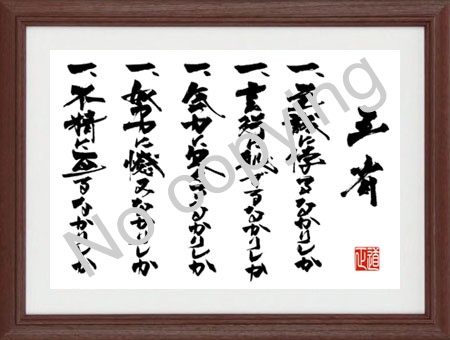 五省
一、至誠に悖るなかりしか
一、言行に恥づるなかりしか
一、気力に欠くるなかりしか
一、努力に憾みなかりしか
一、不精に亘るなかりしか
正道
No copying